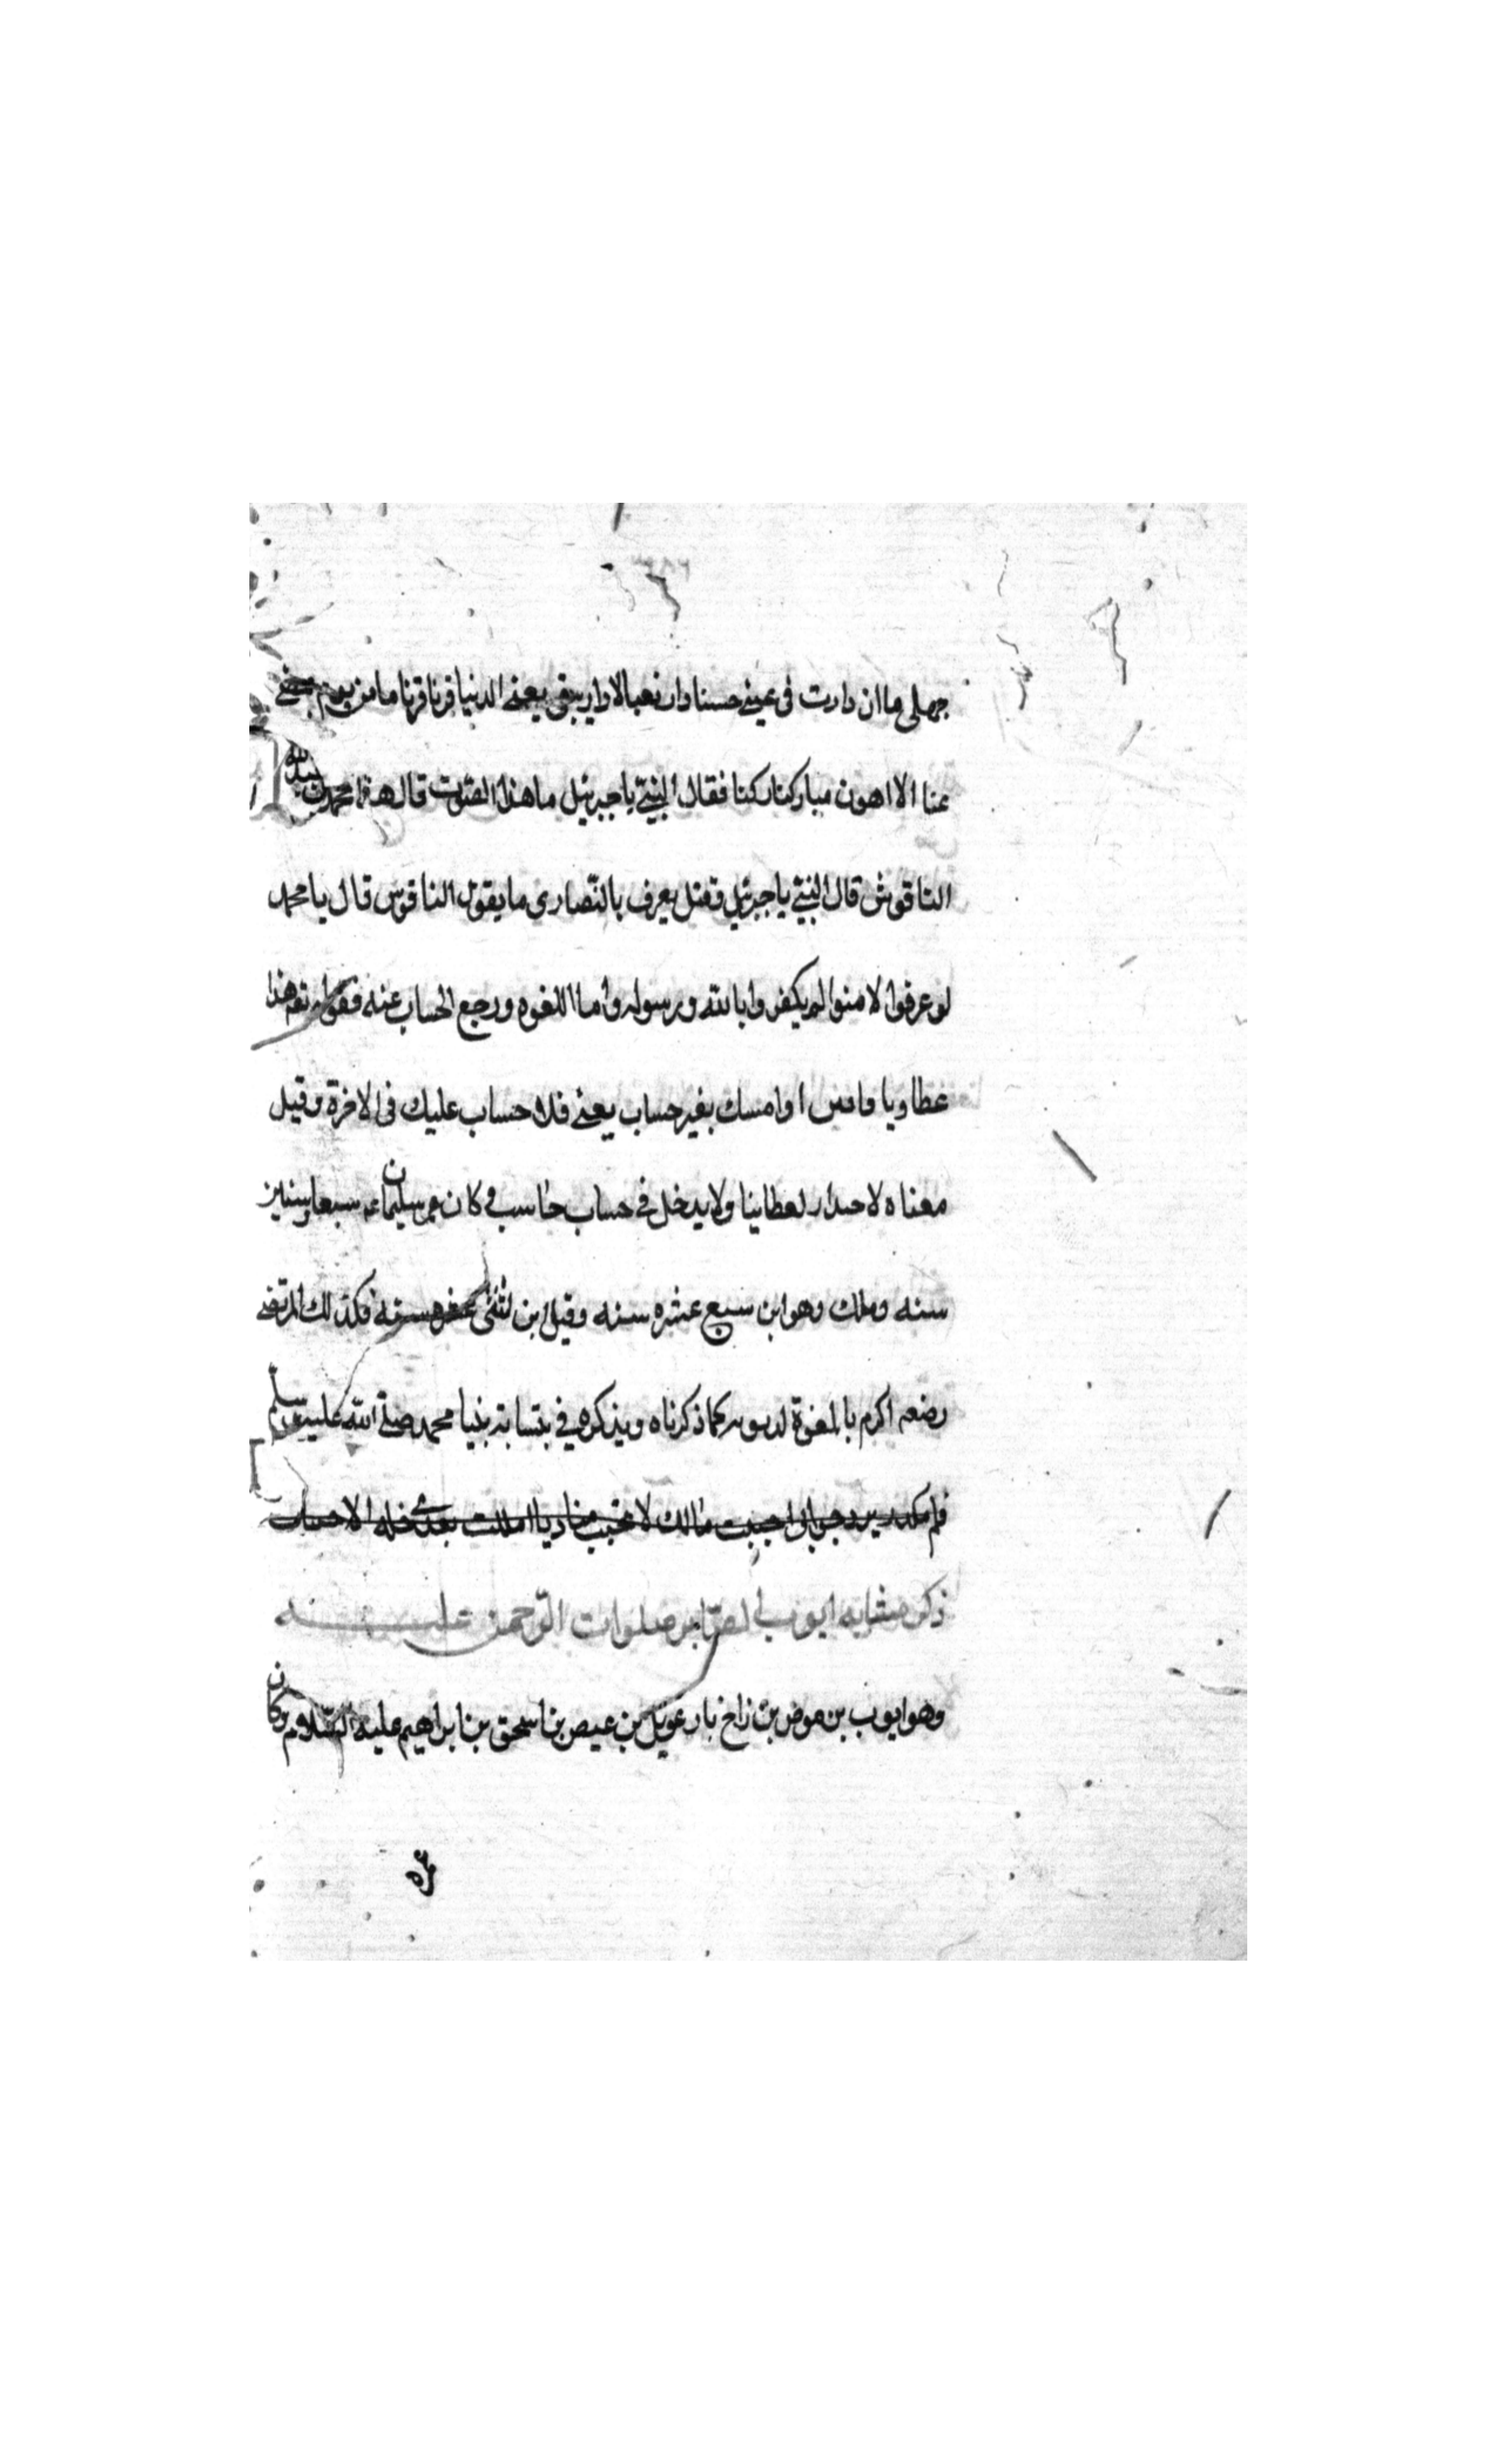 جهلى ماان دارت فى عينى حسنا دار نعبالا وار يبقى يعنى الدنيا قرنا قرنا مامن يوم يمضى
عنا الا اهون مباركنا ركنا فقال النبى يا جبرئيل ما هذا الصوت قال هذا محمد
الناقوش قال النبى يا جبرئيل وهل يعرف بالنصارى ما يقول الناقوس قال يا محمد
لو عرفوا لامنوا لم يكفروا بالله ورسوله واما القوه ورجع الحساب عنه فقوله هذا
عطاونا فامنن او امسك بغير حساب يعنى فلا حساب عليك فى الاخرة وقيل
معناه لا لعطاينا ولا يدخل فى حساب حاسب وكان عمر سليمان سبعا وسنين
سنه وملك وهو ابن سبع عشره سنه وقيل ابن اثنى عشره سنة فكذلك المرتضى
رضعه اكرم بالمفوة كما ذكرناه ويذكره فى نبينا محمد صلى الله عليه وسلم
مالك لا تجيب مناديا امللت بعدى خلة الاحباب
ذكر مشابه ايوب الصابر صلوات الرحمن عليه
وهو ايوب بن موض بن زاخ بار عويل بن عيص بن اسحق بن ابراهيم عليه السلام وكان